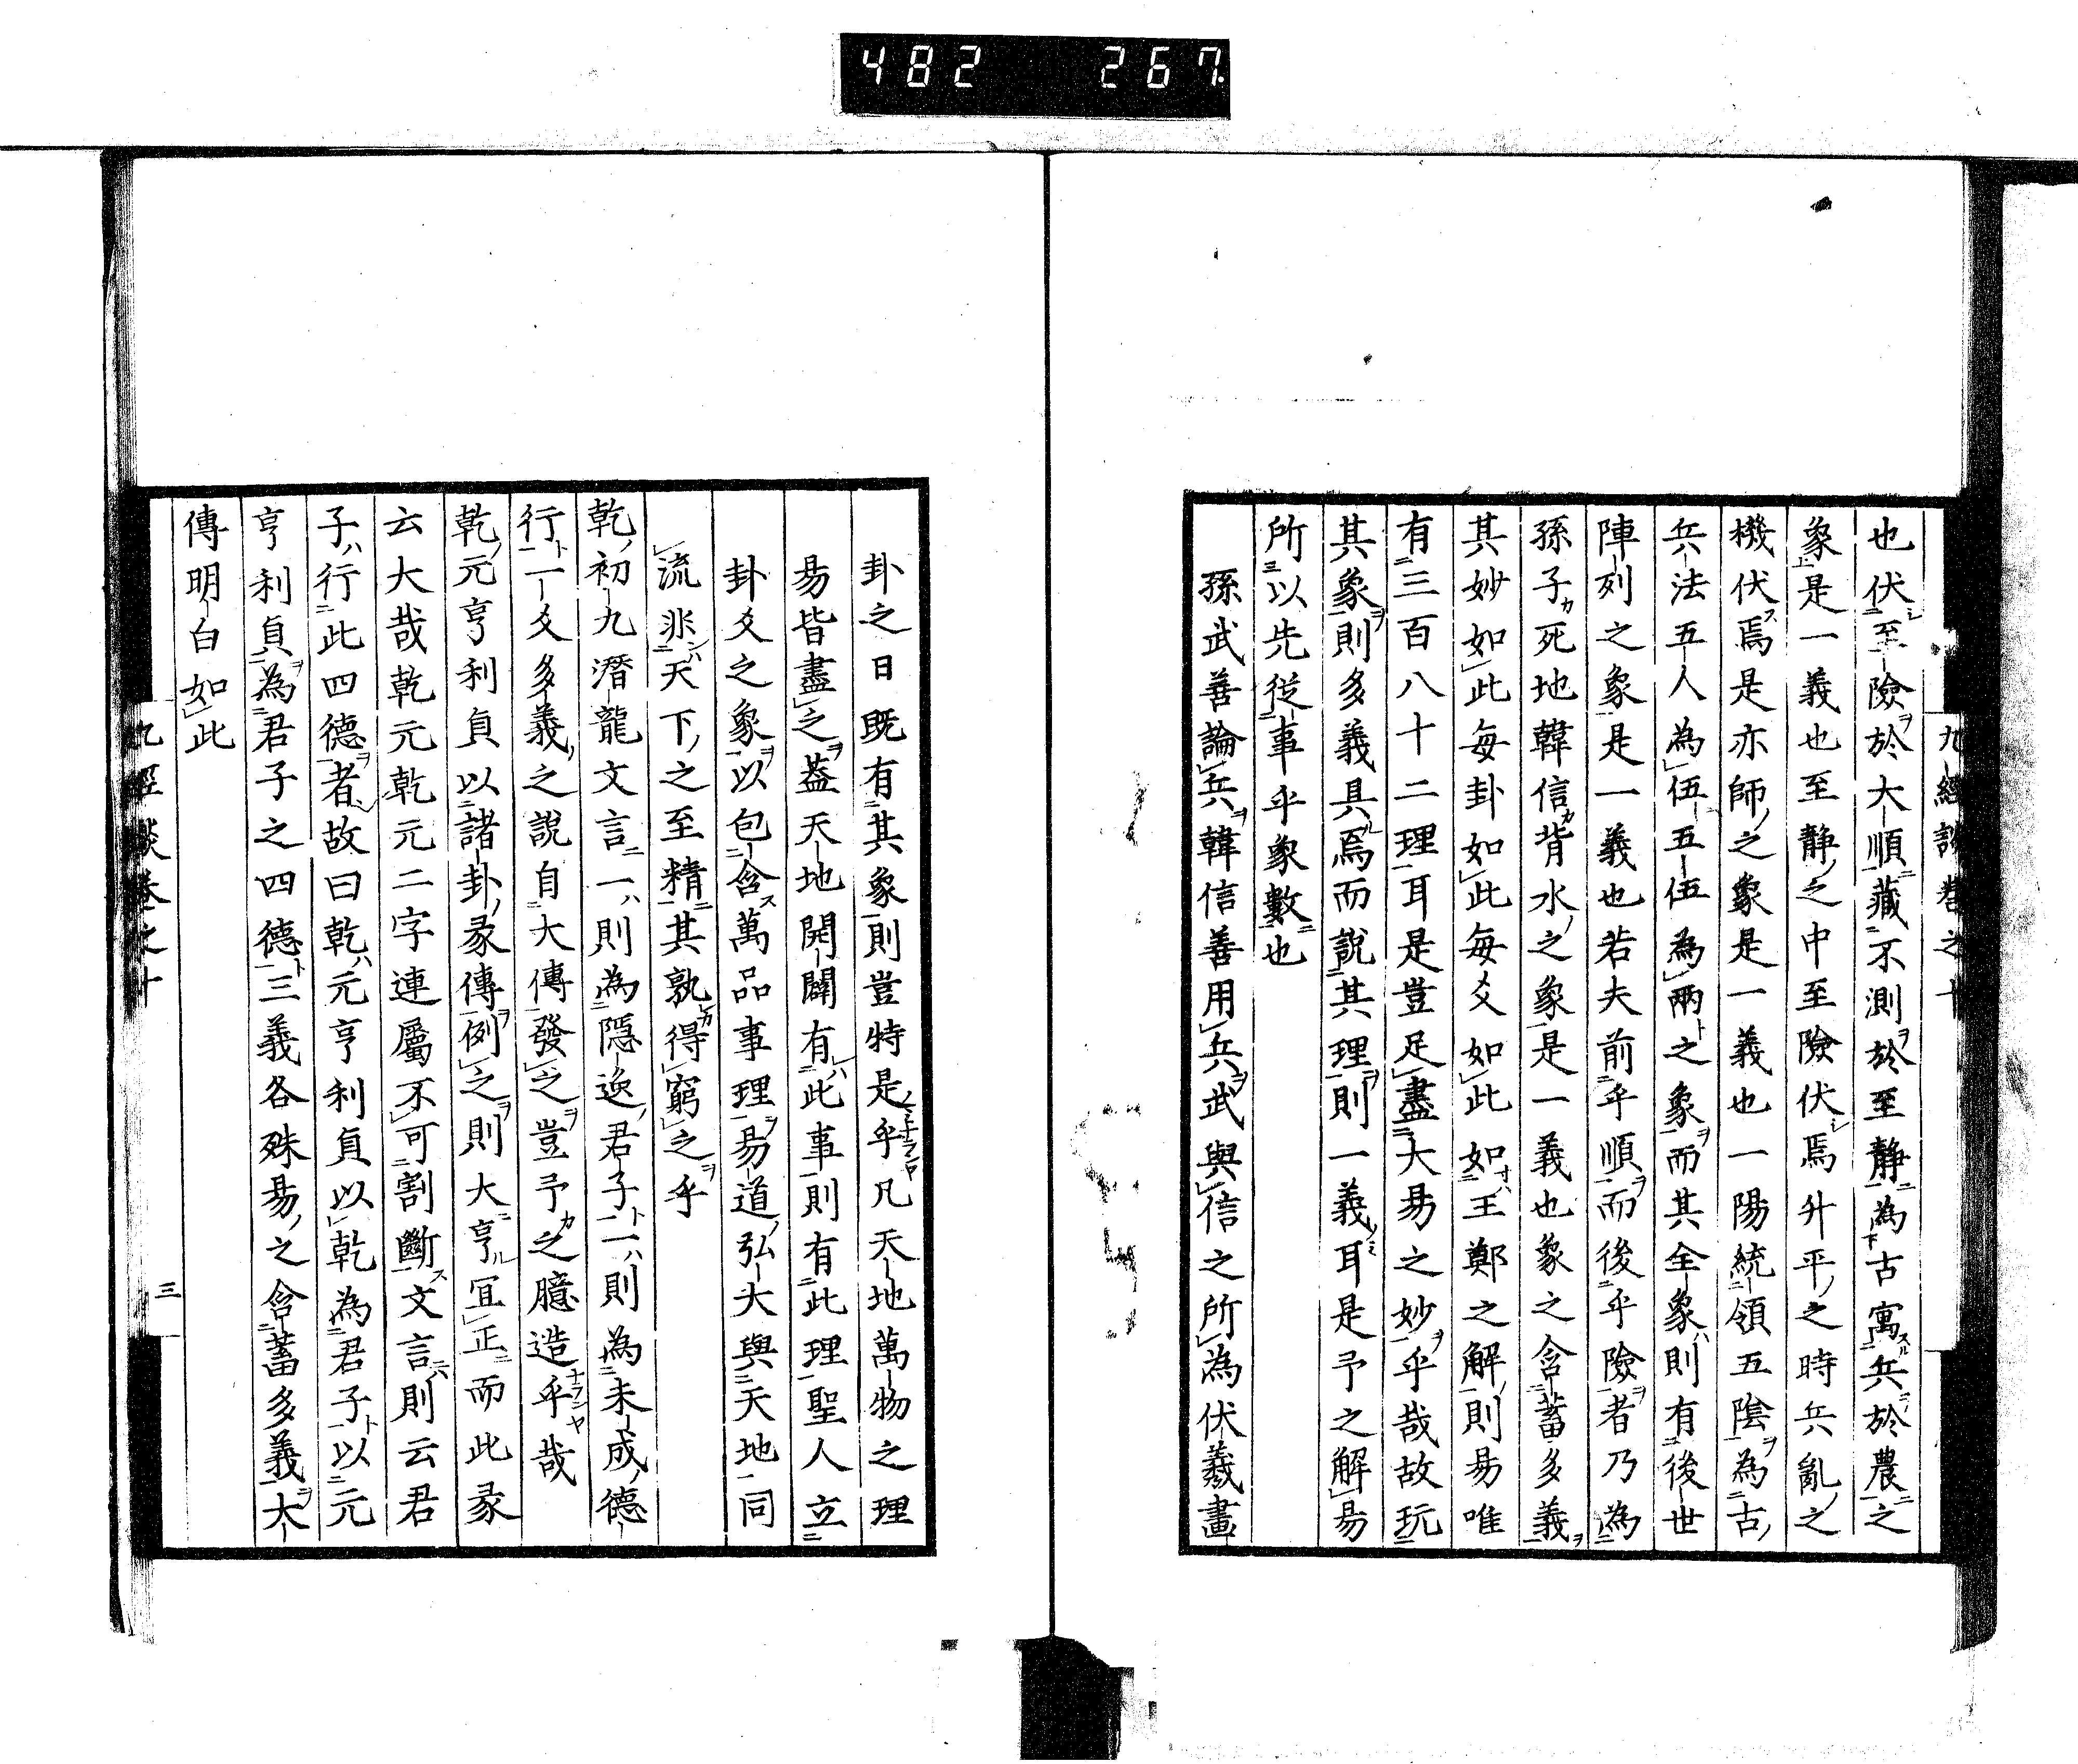 482 267
九經談卷之十
也伏至險於大順藏不測於至靜為古寓兵於農之
象是一義也至靜之中至險伏焉升平之時兵亂之
機伏焉是亦師之象是一義也一陽統領五陰為古
兵法五人為伍五伍為兩之象而其全象則有後世
陣列之象是一義也若夫前乎順而後乎險者乃為
孫子死地韓信背水之象是一義也象之含蓄多義
其妙如此每卦如此每爻如此如王鄭之解則易唯
有三百八十二理耳是豈足盡大易之妙乎哉故玩
其象則多義具焉而說其理則一義耳是予之解易
所以先從事乎象數也
孫武善論兵韓信善用兵武與信之所為伏羲畫
卦之日既有其象則豈特是乎凡天地萬物之理
易皆盡之葢天地開闢有此事則有此理聖人立
卦爻之象以包含萬品事理易道弘大與天地同
流非天下之至精其孰得窮之乎
乾初九潛龍文言一則為隱逸君子一則為未成德
行一爻多義之說自大傳發之豈予之臆造乎哉
乾元亨利貞以諸卦彖傳例之則大亨冝正而此彖
云大哉乾元乾元二字連屬不可割斷文言則云君
子行此四德者故曰乾元亨利貞以乾為君子以元
亨利貞為君子之四德三義各殊易之含蓄多義大
傳明白如此
九經談卷之十
三